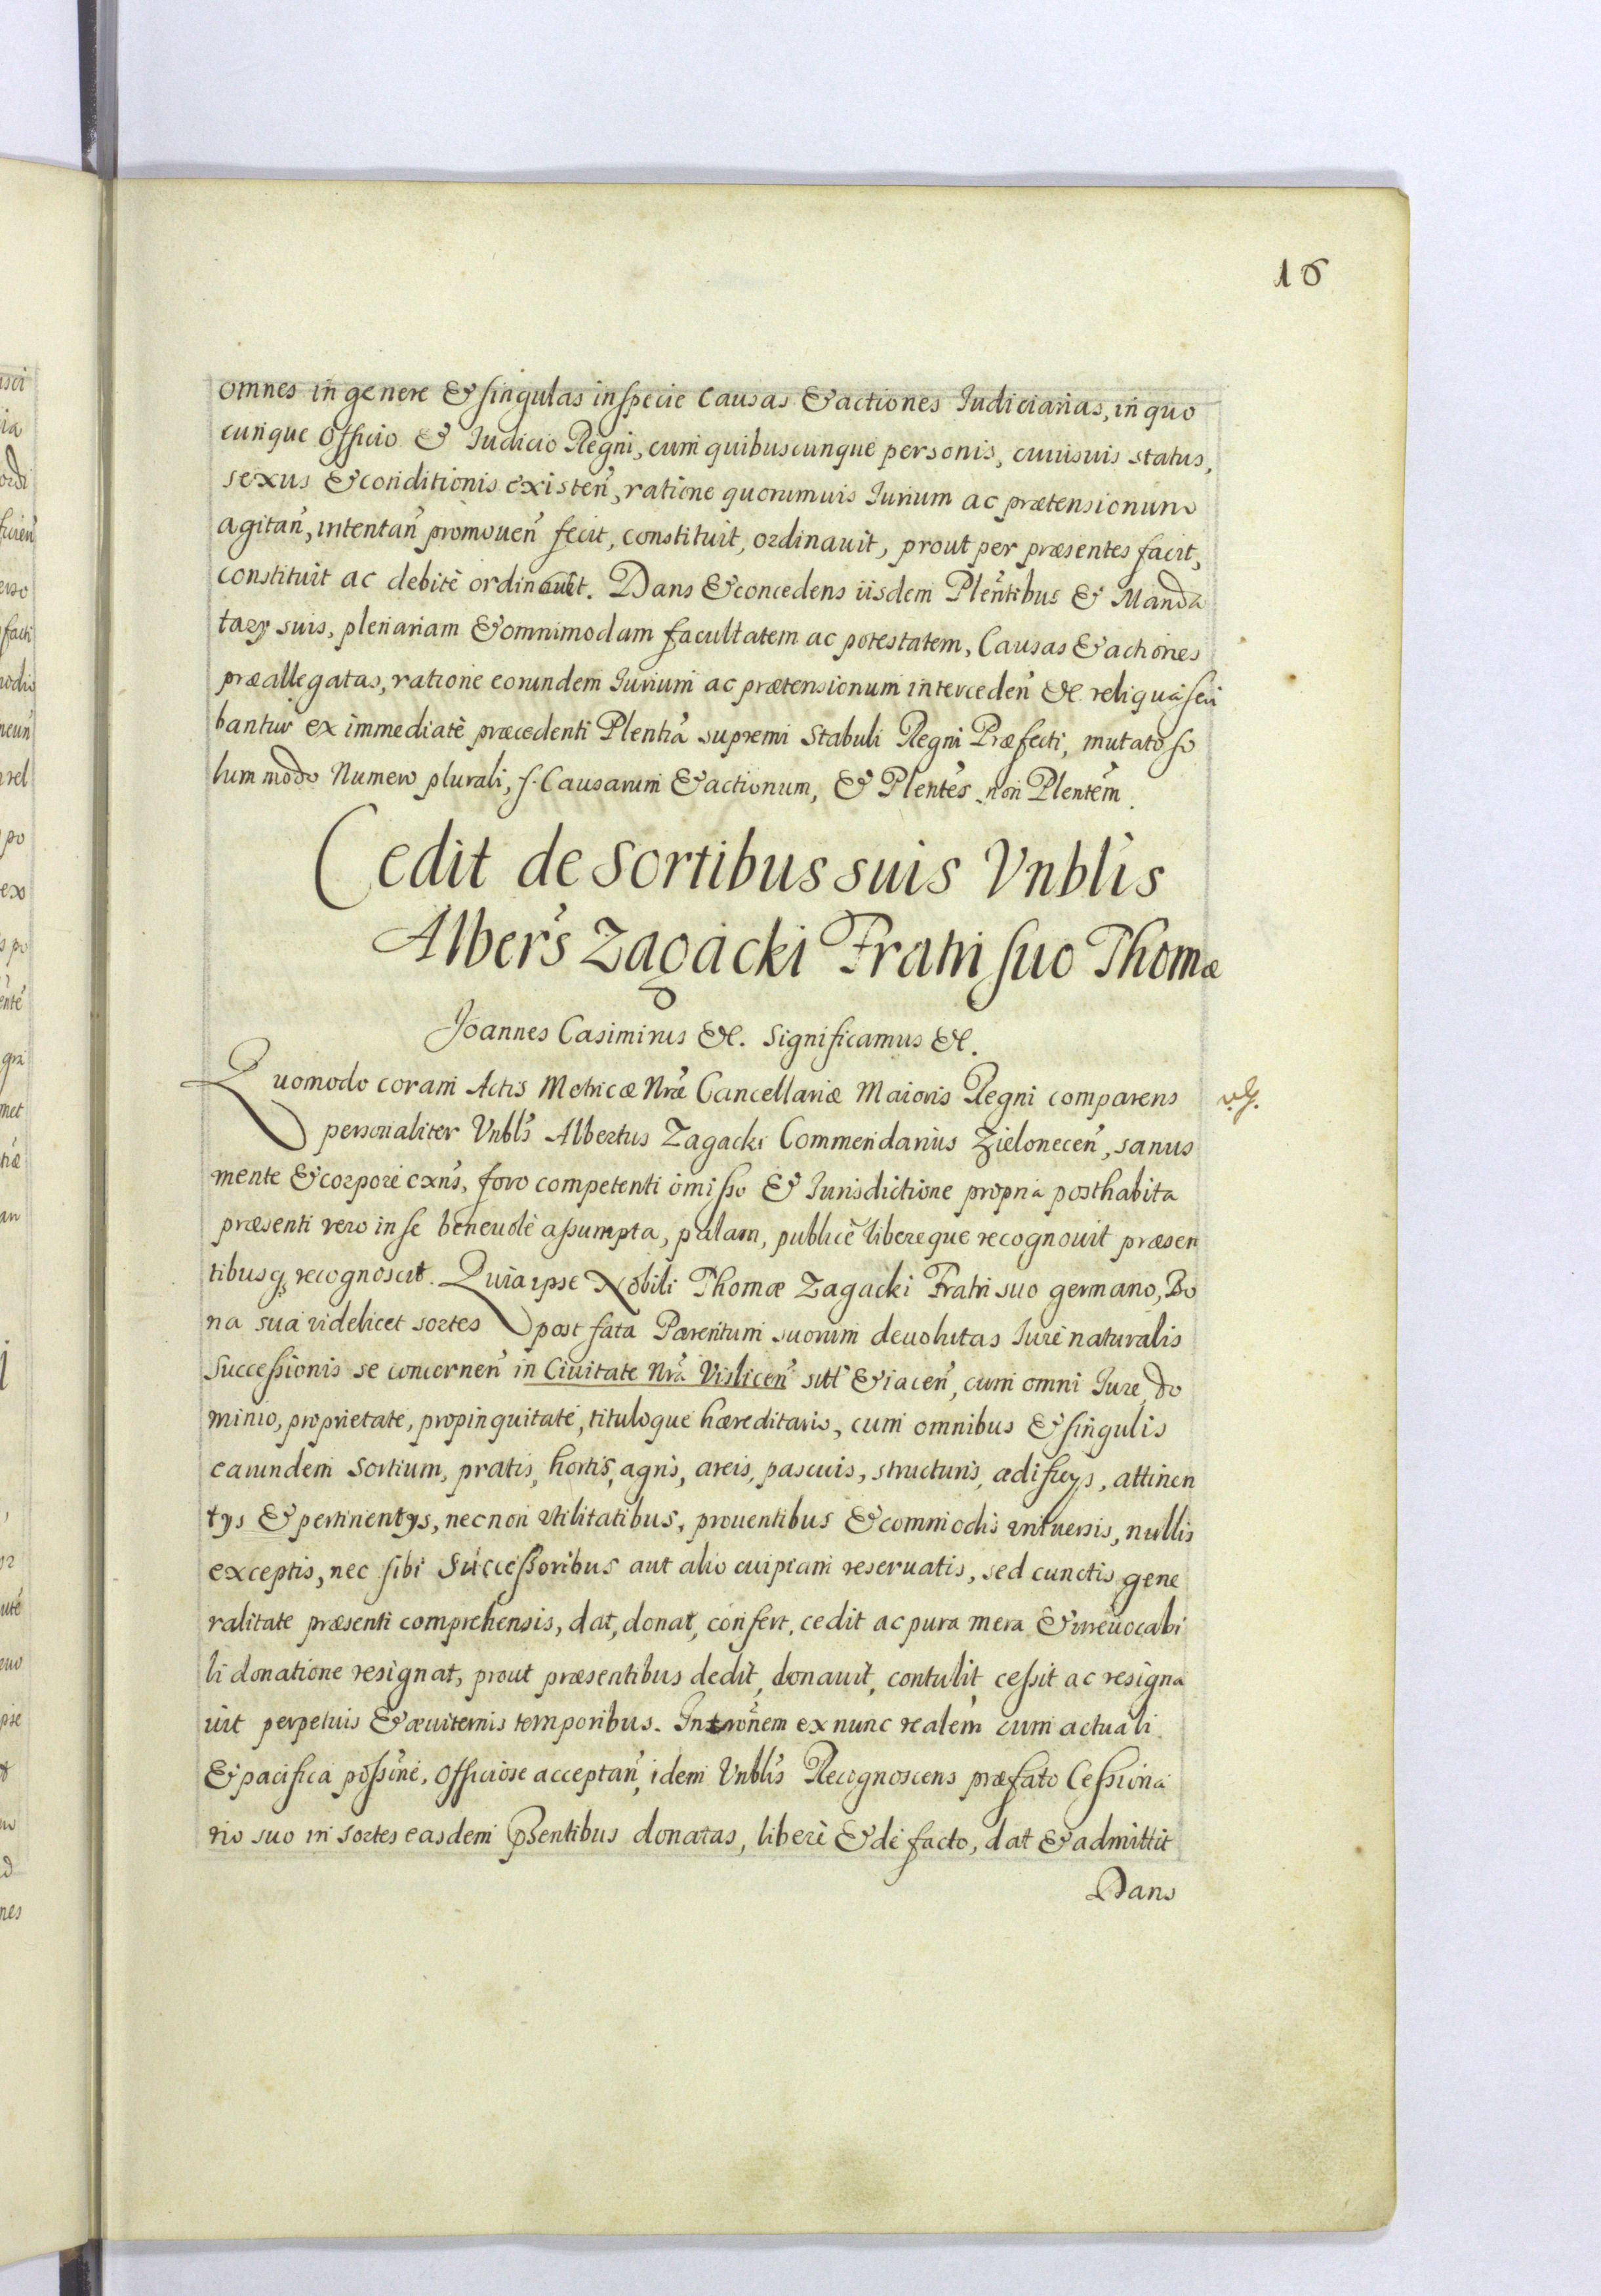 16
omnes in genere & singulas in specie Causas & actiones Judiciarias, in quo
cunque Officio & Judicio Regni, cum quibuscunque personis, cuiusuis status,
sexus & conditionis existen̄, ratione quorumuis Jurium ac prætensionum
agitan̄, intentan̄ promouen̄ fecit, constituit, ordinauit, prout per præsentes facit,
constituit ac debitè ordinauit. Dans & concedens iisdem Plen̄tibus & Manda
tarÿ suis, plenariam & omnimodam facultatem ac potestatem, Causas & actiones
præallegatas, ratione eorundem Jurium ac prætensionum interceden̄ &c. reliqua scri
bantur ex immediatè præcedenti Plentia supremi Stabuli Regni Præfecti, mutato so
lum modo Numero plurali, s. Causarum & actionum, & Plen̄tes non Plen̄tem.
Cedit de Sortibus suis Vnblis
Alber̄s Zagacki Fratri suo Thomæ
Joannes Casimirus &c. Significamus &c.
Quomodo coram Actis Metricæ Nræ Cancellariæ Maioris Regni comparens
personaliter Vnbls Albertus Zagacki Commendarius Zielonecen̄, sanus
mente & corpore exn̄s, foro competenti omisso & Jurisdictione propria posthabita
præsenti vero in se beneuolè assumpta, palam, publicè libereque recognouit præsen
tibusq; recognoscit. Quia ipse Nobili Thomæ Zagacki Fratri suo germano, Bo
na sua videlicet sortes post fata Parentum suorum deuolutas Jure naturalis
Successionis se concernen̄ in Ciuitate Nrâ Vislicen̄ sitt & iacen̄, cum omni Jure, do
minio, proprietate, propinquitate, tituloque hæreditario, cum omnibus & singulis
earundem Sortium, pratis, hortis, agris, areis, pascuis, structuris, ædificÿs, attinen
tÿs & pertinentÿs, necnon vtilitatibus, prouentibus & commodis vniuersis, nullis
exceptis, nec sibi Successoribus aut alio cuipiam reseruatis, sed cunctis gene
ralitate præsenti comprehensis, dat, donat, confert, cedit ac pura mera & irreuocabi
li donatione resignat, prout præsentibus dedit, donauit, contulit cessit ac resigna
uit perpetuis & æuiternis temporibus. Intron̄em ex nunc realem cum actuali
& pacifica possn̄e, Officiose acceptan̄, idem Vnblis Recognoscens præfato Cessiona
rio suo in Sortes easdem Psentibus donatas, liberè & de facto, dat & admittit
Dans